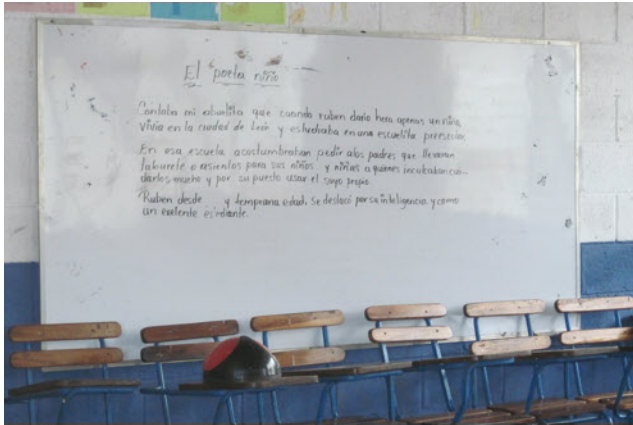 El "poeta niño
Contaba mi abuelita que cuando ruben dario hera apenas un niño,
Vivia en la ciudad de León y estudiaba en una escuelita preescolar
En esa escuela acostumbraban pedir alos padres que llevaran
taburete o asientos para sus niños y niñas a quienes inculcaban cui-
darlos mucho y por su puesto usar el suyo propio.
Ruben desde y temprana edad, Se destacó por su inteligencia y como
un exelente estudiante.